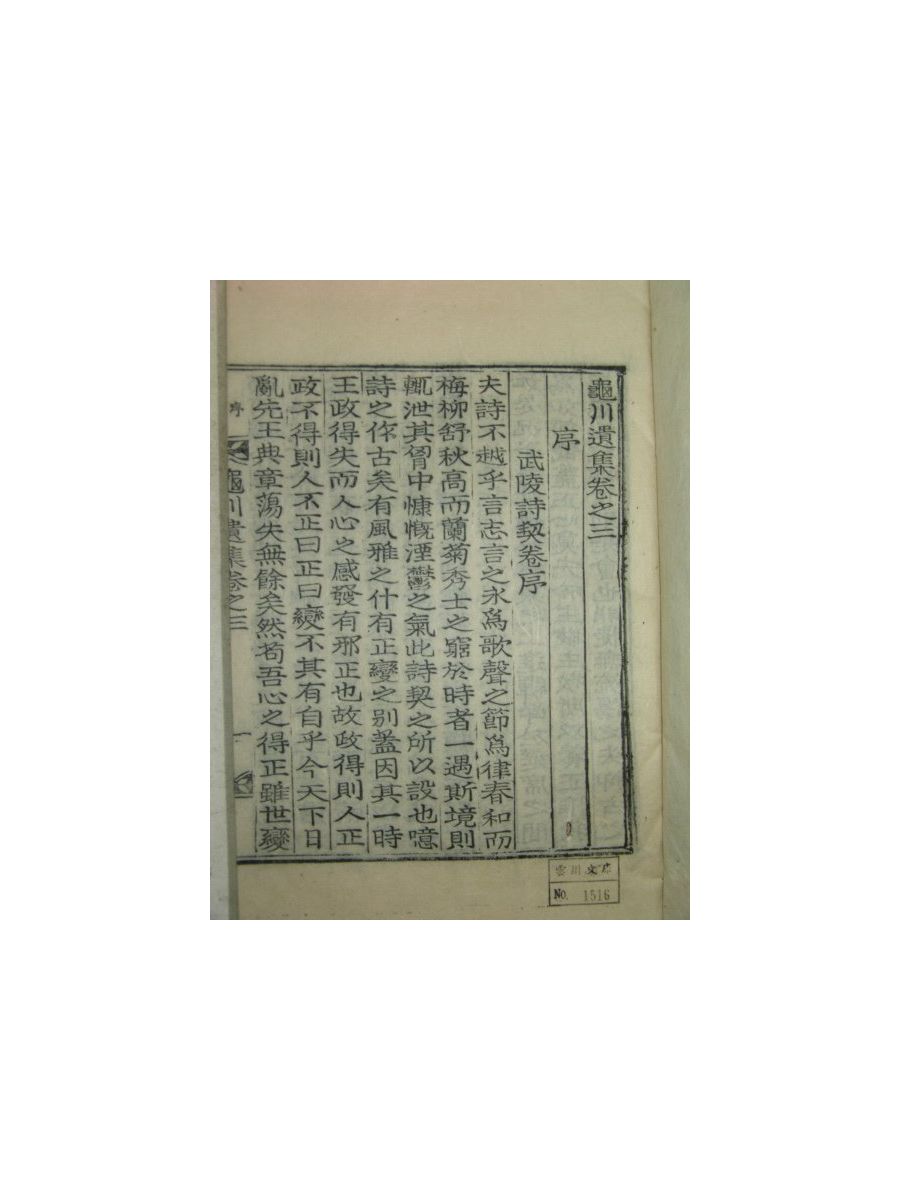 龜川遺集卷之三
序
武陵詩契卷序
夫詩不越乎言志言之永爲歌聲之節爲律春和而
梅柳舒秋高而蘭菊秀士之窮於時者一遇斯境則
輒泄其胷中慷慨湮鬱之氣此詩契之所以設也噫
詩之作古矣有風雅之什有正變之別蓋因其一時
王政得失而人心之感發有邪正也故政得則人正
政不得則人不正曰正曰變不其有自乎今天下日
亂先王典章蕩失無餘矣然苟吾心之得正雖世變
序
龜川遺集卷之三
一
雲川文庫
No. 1516